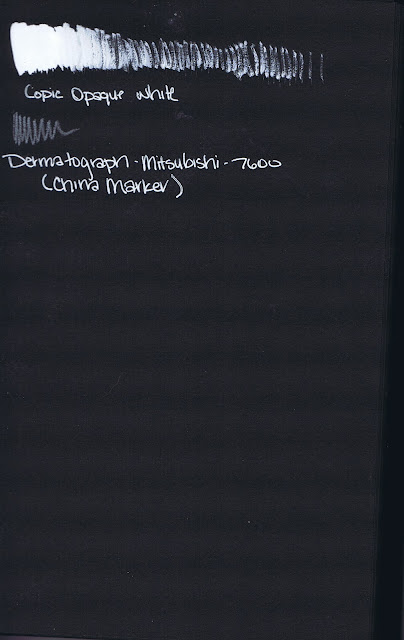 Copic Opaque White
Dermatograph - Mitsubishi - 7600
(China Marker)